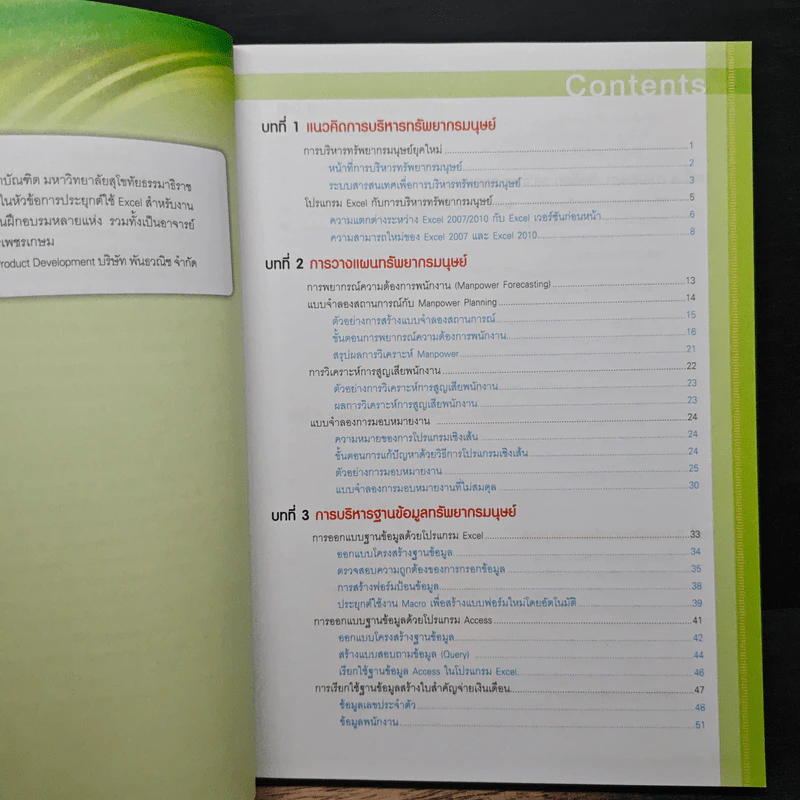 าบัณฑิต มหาวิทยาลัยสุโขทัยธรรมาธิราช
ในหัวข้อการประยุกต์ใช้ Excel สำหรับงาน
นฝึกอบรมหลายแห่ง รวมทั้งเป็นอาจารย์
เพชรเกษม
Product Development บริษัท พันธวณิช จำกัด
Contents
บทที่ 1 แนวคิดการบริหารทรัพยากรมนุษย์
การบริหารทรัพยากรมนุษย์ยุคใหม่ 1
หน้าที่การบริหารทรัพยากรมนุษย์ 2
ระบบสารสนเทศเพื่อการบริหารทรัพยากรมนุษย์ 3
โปรแกรม Excel กับการบริหารทรัพยากรมนุษย์ 5
ความแตกต่างระหว่าง Excel 2007/2010 กับ Excel เวอร์ชันก่อนหน้า 6
ความสามารถใหม่ของ Excel 2007 และ Excel 2010 8
บทที่ 2 การวางแผนทรัพยากรมนุษย์
การพยากรณ์ความต้องการพนักงาน (Manpower Forecasting) 13
แบบจำลองสถานการณ์กับ Manpower Planning 14
ตัวอย่างการสร้างแบบจำลองสถานการณ์ 15
ขั้นตอนการพยากรณ์ความต้องการพนักงาน 16
สรุปผลการวิเคราะห์ Manpower 21
การวิเคราะห์การสูญเสียพนักงาน 22
ตัวอย่างการวิเคราะห์การสูญเสียพนักงาน 23
ผลการวิเคราะห์การสูญเสียพนักงาน 23
แบบจำลองการมอบหมายงาน 24
ความหมายของการโปรแกรมเชิงเส้น 24
ขั้นตอนการแก้ปัญหาด้วยวิธีการโปรแกรมเชิงเส้น 24
ตัวอย่างการมอบหมายงาน 25
แบบจำลองการมอบหมายงานที่ไม่สมดุล 30
บทที่ 3 การบริหารฐานข้อมูลทรัพยากรมนุษย์
การออกแบบฐานข้อมูลด้วยโปรแกรม Excel 33
ออกแบบโครงสร้างฐานข้อมูล 34
ตรวจสอบความถูกต้องของการกรอกข้อมูล 35
การสร้างฟอร์มป้อนข้อมูล 38
ประยุกต์ใช้งาน Macro เพื่อสร้างแบบฟอร์มใหม่โดยอัตโนมัติ 39
การออกแบบฐานข้อมูลด้วยโปรแกรม Access 41
ออกแบบโครงสร้างฐานข้อมูล 42
สร้างแบบสอบถามข้อมูล (Query) 44
เรียกใช้ฐานข้อมูล Access ในโปรแกรม Excel 46
การเรียกใช้ฐานข้อมูลสร้างใบสำคัญจ่ายเงินเดือน 47
ข้อมูลเลขประจำตัว 48
ข้อมูลพนักงาน 51